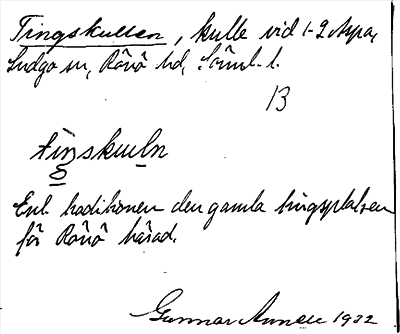 Tingskullen, kulle vid 1-2 Aspa,
Ludgo sn, Rönö hd, Söml. l.
13
tiŋskuuln
Enl. traditionen den gamla tingsplatsen
för Rönö härad.
Gunnar Annell 1932